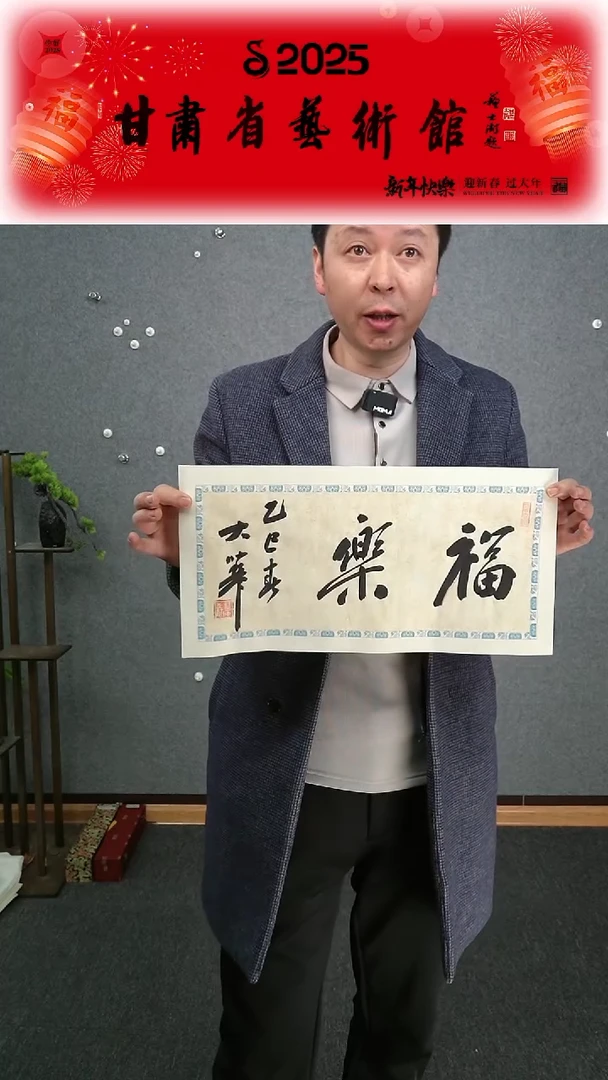 2025
甘肅省藝術館
新年快樂 迎新春 过大年
福
福
福樂
乙巳春
大華